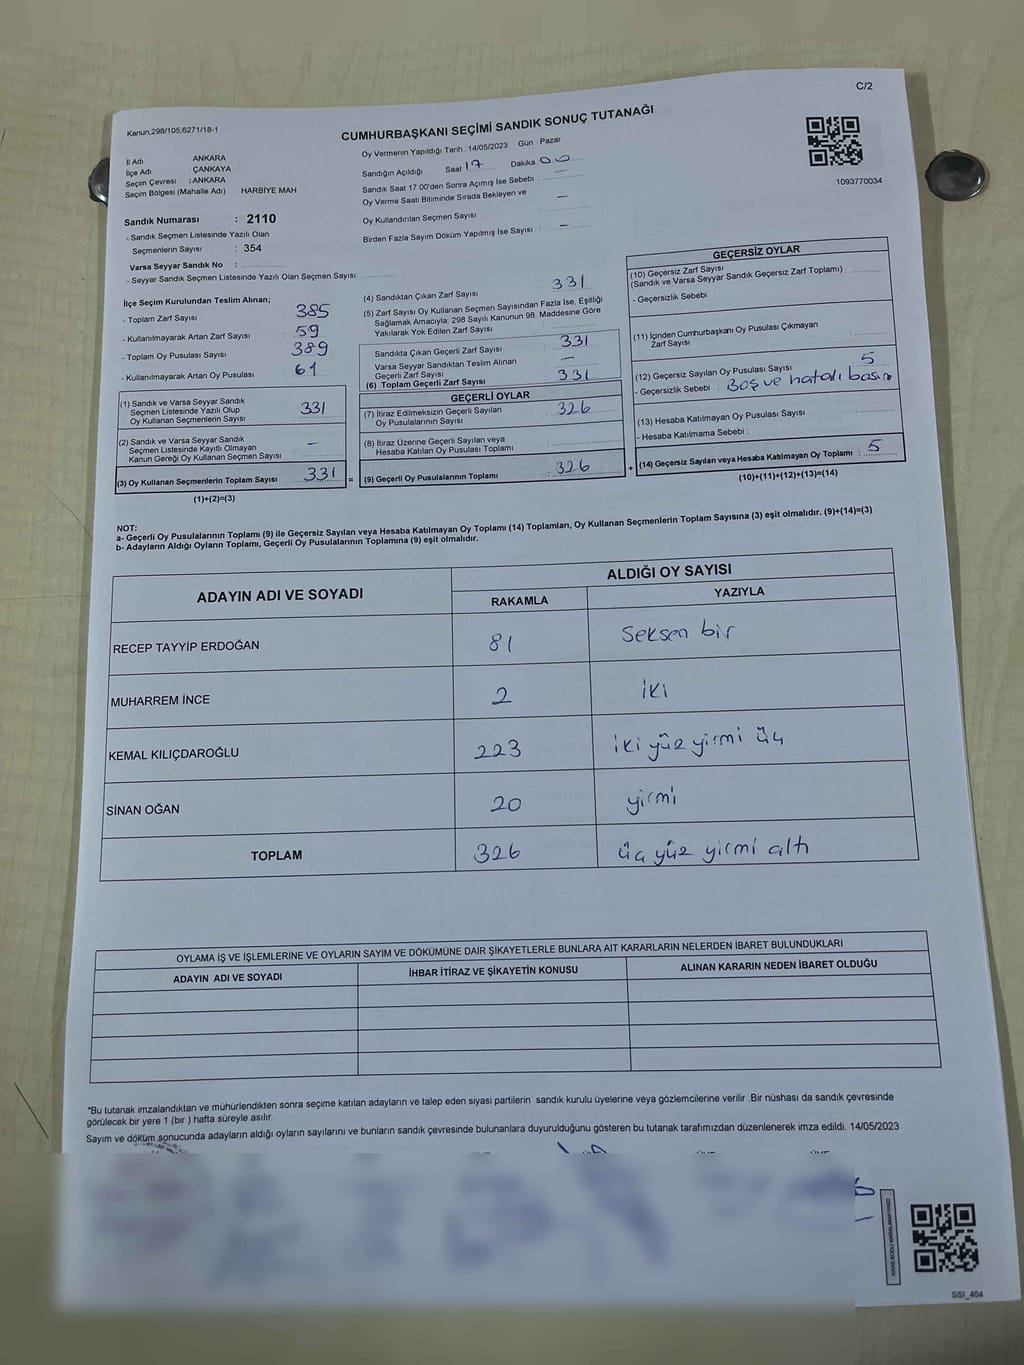 C/2
Kanun;298/105;6271/18-1
CUMHURBAŞKANI SEÇİMİ SANDIK SONUÇ TUTANAĞI
İl Adı : ANKARA
İlçe Adı : ÇANKAYA
Seçim Çevresi : ANKARA
Seçim Bölgesi (Mahalle Adı) : HARBİYE MAH
Sandık Numarası : 2110
- Sandık Seçmen Listesinde Yazılı Olan
Seçmenlerin Sayısı : 354
Varsa Seyyar Sandık No :
- Seyyar Sandık Seçmen Listesinde Yazılı Olan Seçmen Sayısı:
Oy Vermenin Yapıldığı Tarih : 14/05/2023 Gün : Pazar
Sandığın Açıldığı Saat 17 Dakika 00
Sandık Saat 17:00'den Sonra Açımış İse Sebebi : —
Oy Verme Saati Bitiminde Sırada Bekleyen ve
Oy Kullandırılan Seçmen Sayısı : —
Birden Fazla Sayım Döküm Yapılmış İse Sayısı : —
1093770034
İlçe Seçim Kurulundan Teslim Alınan;
- Toplam Zarf Sayısı : 385
- Kullanılmayarak Artan Zarf Sayısı : 59
- Toplam Oy Pusulası Sayısı : 389
- Kullanılmayarak Artan Oy Pusulası : 61
(1) Sandık ve Varsa Seyyar Sandık
Seçmen Listesinde Yazılı Olup
Oy Kullanan Seçmenlerin Sayısı : 331
(2) Sandık ve Varsa Seyyar Sandık
Seçmen Listesinde Kayıtlı Olmayan
Kanun Gereği Oy Kullanan Seçmen Sayısı : —
(3) Oy Kullanan Seçmenlerin Toplam Sayısı : 331 =
(1)+(2)=(3)
(4) Sandıktan Çıkan Zarf Sayısı : 331
(5) Zarf Sayısı Oy Kullanan Seçmen Sayısından Fazla İse, Eşitliği
Sağlamak Amacıyla; 298 Sayılı Kanunun 98. Maddesine Göre
Yakılarak Yok Edilen Zarf Sayısı :
Sandıkta Çıkan Geçerli Zarf Sayısı : 331
Varsa Seyyar Sandıktan Teslim Alınan
Geçerli Zarf Sayısı : —
(6) Toplam Geçerli Zarf Sayısı : 331
GEÇERLİ OYLAR
(7) İtiraz Edilmeksizin Geçerli Sayılan
Oy Pusulalarının Sayısı : 326
(8) İtiraz Üzerine Geçerli Sayılan veya
Hesaba Katılan Oy Pusulası Toplamı :
(9) Geçerli Oy Pusulalarının Toplamı : 326 +
GEÇERSİZ OYLAR
(10) Geçersiz Zarf Sayısı
(Sandık ve Varsa Seyyar Sandık Geçersiz Zarf Toplamı) :
- Geçersizlik Sebebi :
(11) İçinden Cumhurbaşkanı Oy Pusulası Çıkmayan
Zarf Sayısı :
(12) Geçersiz Sayılan Oy Pusulası Sayısı : 5
- Geçersizlik Sebebi : Boş ve hatalı basım
(13) Hesaba Katılmayan Oy Pusulası Sayısı :
- Hesaba Katılmama Sebebi :
(14) Geçersiz Sayılan veya Hesaba Katılmayan Oy Toplamı : 5
(10)+(11)+(12)+(13)=(14)
NOT:
a- Geçerli Oy Pusulalarının Toplamı (9) ile Geçersiz Sayılan veya Hesaba Katılmayan Oy Toplamı (14) Toplamları, Oy Kullanan Seçmenlerin Toplam Sayısına (3) eşit olmalıdır. (9)+(14)=(3)
b- Adayların Aldığı Oyların Toplamı, Geçerli Oy Pusulalarının Toplamına (9) eşit olmalıdır.
ADAYIN ADI VE SOYADI
ALDIĞI OY SAYISI
RAKAMLA YAZIYLA
RECEP TAYYİP ERDOĞAN 81 Seksen bir
MUHARREM İNCE 2 iki
KEMAL KILIÇDAROĞLU 223 iki yüz yirmi üç
SİNAN OĞAN 20 yirmi
TOPLAM 326 üç yüz yirmi altı
OYLAMA İŞ VE İŞLEMLERİNE VE OYLARIN SAYIM VE DÖKÜMÜNE DAİR ŞİKAYETLERLE BUNLARA AİT KARARLARIN NELERDEN İBARET BULUNDUKLARI
ADAYIN ADI VE SOYADI İHBAR İTİRAZ VE ŞİKAYETİN KONUSU ALINAN KARARIN NEDEN İBARET OLDUĞU
*Bu tutanak imzalandıktan ve mühürlendikten sonra seçime katılan adayların ve talep eden siyasi partilerin sandık kurulu üyelerine veya gözlemcilerine verilir .Bir nüshası da sandık çevresinde
görülecek bir yere 1 (bir ) hafta süreyle asılır.
Sayım ve döküm sonucunda adayların aldığı oyların sayılarını ve bunların sandık çevresinde bulunanlara duyurulduğunu gösteren bu tutanak tarafımızdan düzenlenerek imza edildi. 14/05/2023
SSI_404